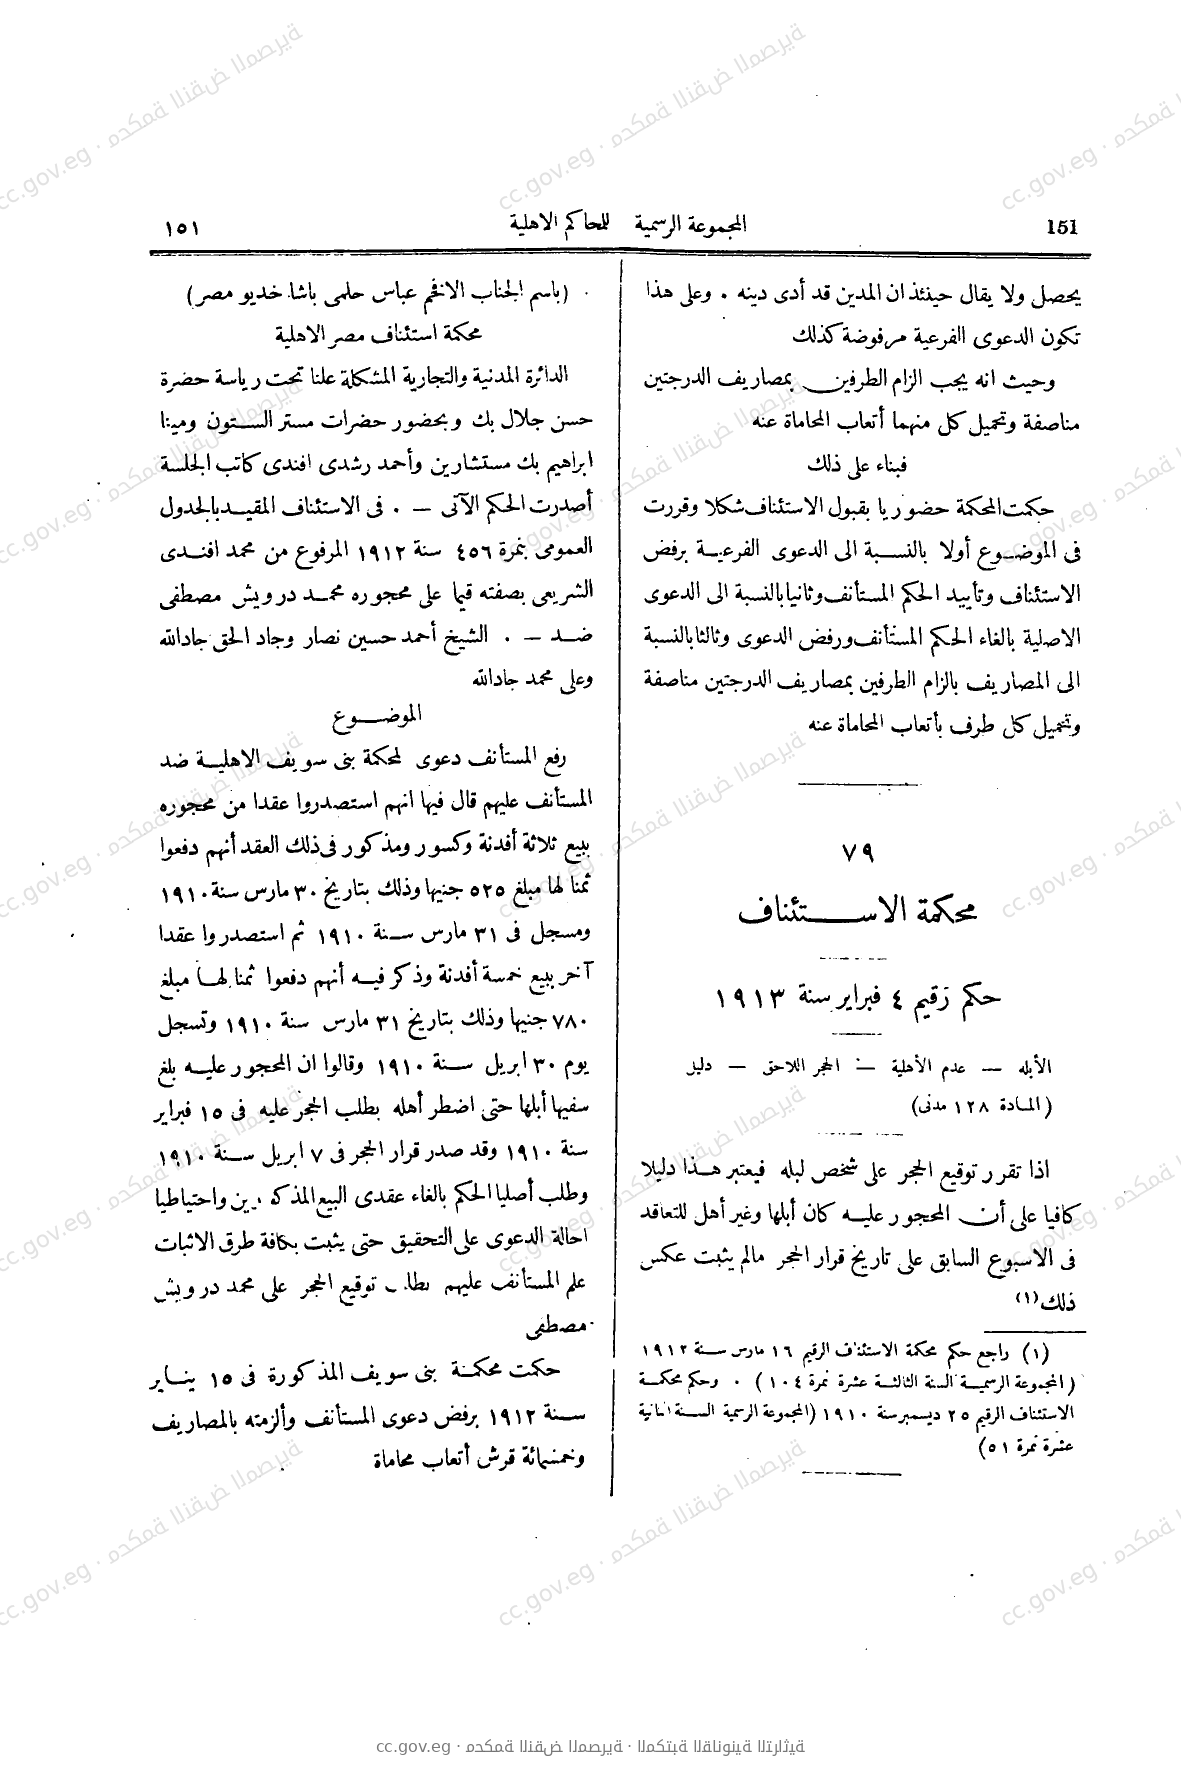 151 المجموعة الرسمية للمحاكم الاهلية ١٥١
يحصل ولا يقال حينئذ ان المدين قد أدى دينه . وعلى هذا
تكون الدعوى الفرعية مرفوضة كذلك
وحيث انه يجب الزام الطرفين بمصاريف الدرجتين
مناصفة وتحميل كل منهما أتعاب المحاماة عنه
فبناء على ذلك
حكمت المحكمة حضوريا بقبول الاستئناف شكلا وقررت
فى الموضوع أولا بالنسبة الى الدعوى الفرعية برفض
الاستئناف وتأييد الحكم المستأنف وثانيا بالنسبة الى الدعوى
الاصلية بالغاء الحكم المستأنف ورفض الدعوى وثالثا بالنسبة
الى المصاريف بالزام الطرفين بمصاريف الدرجتين مناصفة
وتحميل كل طرف بأتعاب المحاماة عنه
٧٩
محكمة الاستئناف
حكم رقيم ٤ فبراير سنة ١٩١٣
الأبله — عدم الأهلية — الحجر اللاحق — دليل
(المادة ١٢٨ مدنى)
اذا تقرر توقيع الحجر على شخص لبله فيعتبر هذا دليلا
كافيا على أن المحجور عليه كان أبلها وغير أهل للتعاقد
فى الاسبوع السابق على تاريخ قرار الحجر مالم يثبت عكس
ذلك (١)
(١) راجع حكم محكمة الاستئناف الرقيم ١٦ مارس سنة ١٩١٢
(المجموعة الرسمية السنة الثالثة عشرة نمرة ١٠٤) . وحكم محكمة
الاستئناف الرقيم ٢٥ ديسمبر سنة ١٩١٠ (المجموعة الرسمية السنة الثانية
عشرة نمرة ٥١)
(باسم الجناب الافخم عباس حلمى باشا خديو مصر)
محكمة استئناف مصر الاهلية
الدائرة المدنية والتجارية المشكلة علنا تحت رياسة حضرة
حسن جلال بك وبحضور حضرات مستر الستون ومينا
ابراهيم بك مستشارين وأحمد رشدى افندى كاتب الجلسة
أصدرت الحكم الآتى — . فى الاستئناف المقيد بالجدول
العمومى بنمرة ٤٥٦ سنة ١٩١٢ المرفوع من محمد افندى
الشريعى بصفته قيما على محجوره محمد درويش مصطفى
ضد — . الشيخ أحمد حسين نصار وجاد الحق جادالله
وعلى محمد جادالله
الموضوع
رفع المستأنف دعوى لمحكمة بنى سويف الاهلية ضد
المستأنف عليهم قال فيها انهم استصدروا عقدا من محجوره
ببيع ثلاثة أفدنة وكسور ومذكور فى ذلك العقد أنهم دفعوا
ثمنا لها مبلغ ٥٢٥ جنيها وذلك بتاريخ ٣٠ مارس سنة ١٩١٠
ومسجل فى ٣١ مارس سنة ١٩١٠ ثم استصدروا عقدا
آخر ببيع خمسة أفدنة وذكر فيه أنهم دفعوا ثمنا لها مبلغ
٧٨٠ جنيها وذلك بتاريخ ٣١ مارس سنة ١٩١٠ وتسجل
يوم ٣٠ ابريل سنة ١٩١٠ وقالوا ان المحجور عليه بلغ
سفيها أبلها حتى اضطر أهله بطلب الحجر عليه فى ١٥ فبراير
سنة ١٩١٠ وقد صدر قرار الحجر فى ٧ ابريل سنة ١٩١٠
وطلب أصليا الحكم بالغاء عقدى البيع المذكورين واحتياطيا
احالة الدعوى على التحقيق حتى يثبت بكافة طرق الاثبات
علم المستأنف عليهم بطلب توقيع الحجر على محمد درويش
مصطفى
حكمت محكمة بنى سويف المذكورة فى ١٥ يناير
سنة ١٩١٢ برفض دعوى المستأنف وألزمته بالمصاريف
وخمسمائة قرش أتعاب محاماة
cc.gov.eg · محكمة النقض المصرية · المكتبة القانونية التراثية